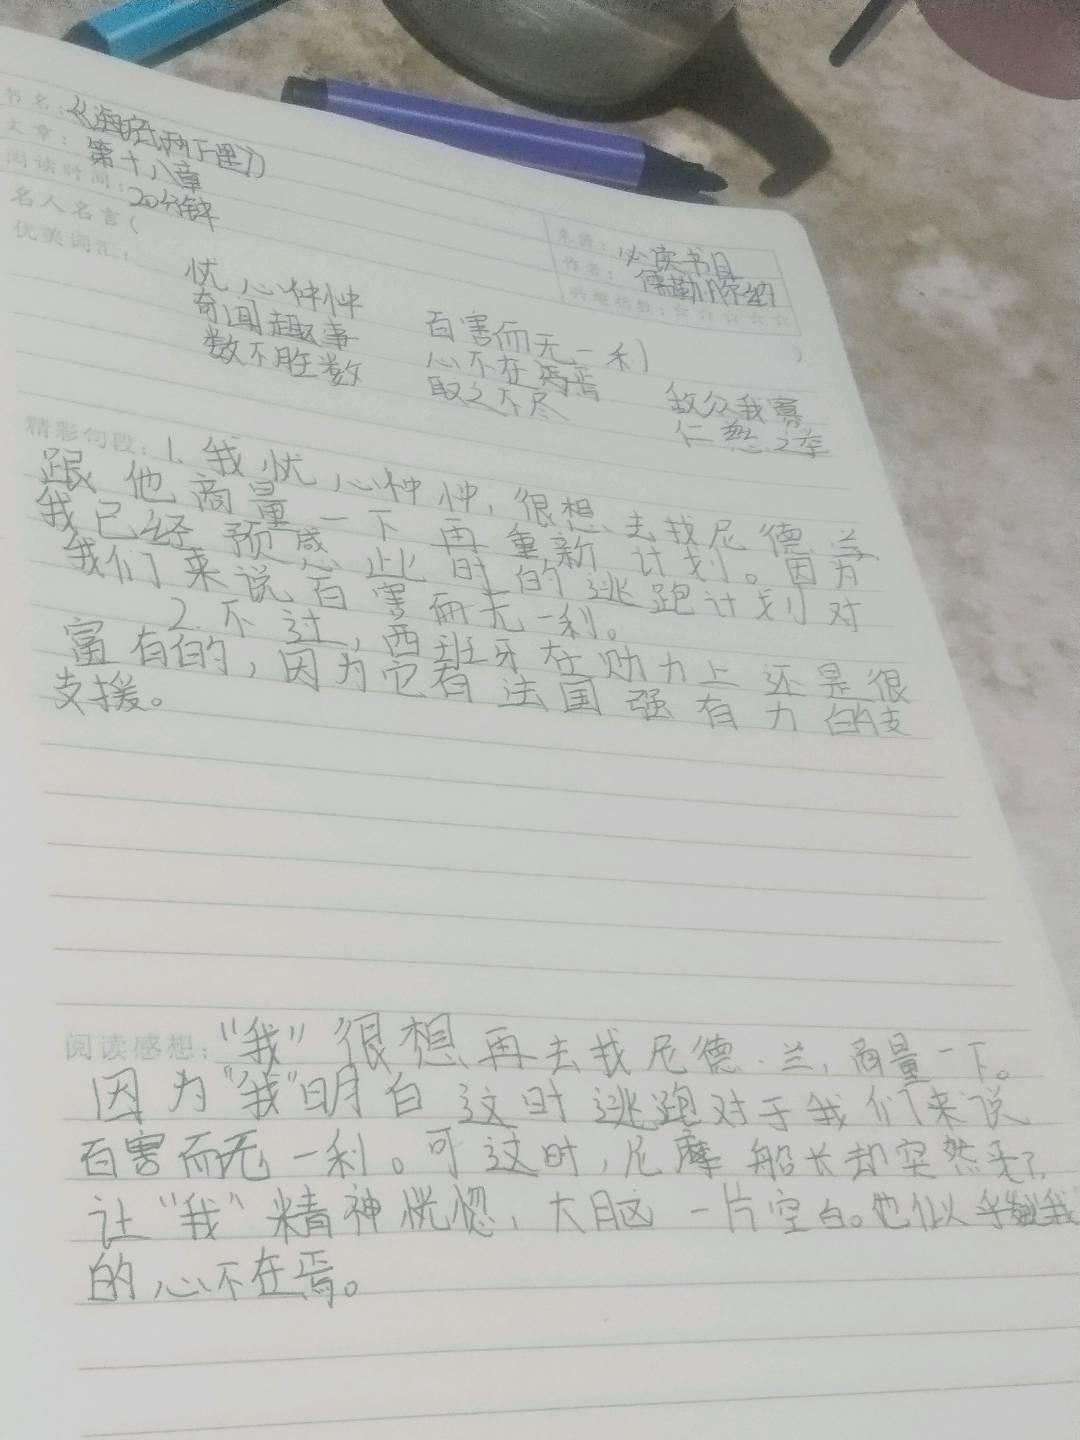 书名:《海底两万里》
文章: 第十八章
阅读时间: 20分钟
名人名言(
)
来源: 必读书目
作者: 儒勒·凡尔纳
兴趣指数:☆☆☆☆☆
优美词汇:
忧心忡忡 百害而无一利
奇闻趣事 心不在焉焉
数不胜数 取之不尽 敌众我寡
仁慈之举
精彩句段: 1. 我忧心忡忡,很想去找尼德·兰
跟他商量一下再重新计划。因为
我已经预感此时的逃跑计划对
我们来说百害而无一利。
2. 不过,西班牙在财力上还是很
富有的,因为它有法国强有力的支
支援。
阅读感想: “我”很想再去找尼德·兰,商量一下。
因为“我”明白这时逃跑对于我们来说
百害而无一利。可这时,尼摩船长却突然来了
让“我”精神恍惚,大脑一片空白。他似乎 我
的心不在焉。